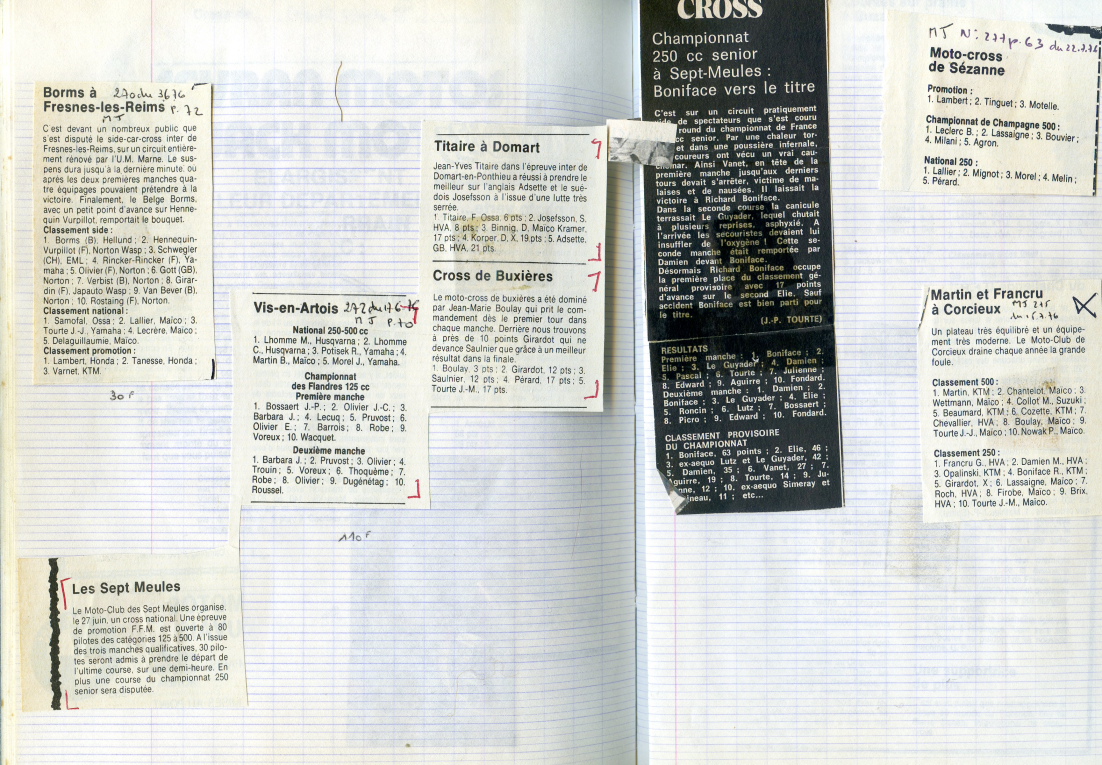 Borms à
Fresnes-les-Reims
270 du 3676
MJ P. 72
C'est devant un nombreux public que
s'est disputé le side-car-cross inter de
Fresnes-les-Reims, sur un circuit entière-
ment rénové par l'U.M. Marne. Le sus-
pens dura jusqu'à la dernière minute, ou
après les deux premières manches qua-
tre équipages pouvaient prétendre à la
victoire. Finalement, le Belge Borms,
avec un petit point d'avance sur Henne-
quin Vurpillot, remportait le bouquet.
Classement side :
1. Borms (B). Hellund ; 2. Hennequin-
Vurpillot (F), Norton Wasp ; 3. Schwegler
(CH), EML ; 4. Rincker-Rincker (F), Ya-
maha ; 5. Olivier (F), Norton ; 6. Gott (GB),
Norton ; 7. Verbist (B), Norton ; 8. Girar-
din (F), Japauto Wasp ; 9. Van Bever (B),
Norton ; 10. Rostaing (F), Norton.
Classement national :
1. Samofal, Ossa ; 2. Lallier, Maïco ; 3.
Tourte J.-J., Yamaha ; 4. Lecrère, Maïco ;
5. Delaguillaumie, Maïco.
Classement promotion :
1. Lambert, Honda ; 2. Tanesse, Honda ;
3. Varnet, KTM.
30 F
Vis-en-Artois
MJ P. 70
National 250-500 cc
1. Lhomme M., Husqvarna ; 2. Lhomme
C., Husqvarna ; 3. Potisek R., Yamaha ; 4.
Martin B., Maïco ; 5. Morel J., Yamaha.
Championnat
des Flandres 125 cc
Première manche
1. Bossaert J.-P. ; 2. Olivier J.-C. ; 3.
Barbara J. ; 4. Lecuq ; 5. Pruvost ; 6.
Olivier E. ; 7. Barrois ; 8. Robe ; 9.
Voreux ; 10. Wacquet.
Deuxième manche
1. Barbara J. ; 2. Pruvost ; 3. Olivier ; 4.
Trouin ; 5. Voreux ; 6. Thoquème ; 7.
Robe ; 8. Olivier ; 9. Dugénétag ; 10.
Roussel.
110 F
Les Sept Meules
Le Moto-Club des Sept Meules organise,
le 27 juin, un cross national. Une épreuve
de promotion F.F.M. est ouverte à 80
pilotes des catégories 125 à 500. A l'issue
des trois manches qualificatives, 30 pilo-
tes seront admis à prendre le départ de
l'ultime course, sur une demi-heure. En
plus une course du championnat 250
senior sera disputée.
Titaire à Domart
Jean-Yves Titaire dans l'épreuve inter de
Domart-en-Ponthieu a réussi à prendre le
meilleur sur l'anglais Adsette et le sué-
dois Josefsson à l'issue d'une lutte très
serrée.
1. Titaire, F, Ossa, 6 pts ; 2. Josefsson, S,
HVA, 8 pts ; 3. Binnig, D, Maïco Kramer,
17 pts ; 4. Korper, D, X, 19 pts ; 5. Adsette,
GB, HVA, 21 pts.
Cross de Buxières
Le moto-cross de buxières a été dominé
par Jean-Marie Boulay qui prit le com-
mandement dès le premier tour dans
chaque manche. Derrière nous trouvons
à près de 10 points Girardot qui ne
devance Saulnier que grâce à un meilleur
résultat dans la finale.
1. Boulay, 3 pts ; 2. Girardot, 12 pts ; 3.
Saulnier, 12 pts ; 4. Pérard, 17 pts ; 5.
Tourte J.-M., 17 pts.
CROSS
Championnat
250 cc senior
à Sept-Meules :
Boniface vers le titre
C'est sur un circuit pratiquement
de spectateurs que s'est couru
round du championnat de France
cc senior. Par une chaleur tor-
et dans une poussière infernale,
coureurs ont vécu un vrai cau-
chemar. Ainsi Vanet, en tête de la
première manche jusqu'aux derniers
tours devait s'arrêter, victime de ma-
laises et de nausées. Il laissait la
victoire à Richard Boniface.
Dans la seconde course la canicule
terrassait Le Guyader, lequel chutait
à plusieurs reprises, asphyxié. A
l'arrivée les secouristes devaient lui
insuffler de l'oxygène ! Cette se-
conde manche était remportée par
Damien devant Boniface.
Désormais Richard Boniface occupe
la première place du classement gé-
néral provisoire avec 17 points
d'avance sur le second Elie. Sauf
accident Boniface est bien parti pour
le titre.
(J.-P. TOURTE)
RESULTATS
Première manche : 1. Boniface ; 2.
Elie ; 3. Le Guyader ; 4. Damien ;
5. Pascal ; 6. Tourte ; 7. Julienne ;
8. Edward ; 9. Aguirre ; 10. Fondard.
Deuxième manche : 1. Damien ; 2.
Boniface ; 3. Le Guyader ; 4. Elie ;
5. Roncin ; 6. Lutz ; 7. Bossaert ;
8. Picro ; 9. Edward ; 10. Fondard.
CLASSEMENT PROVISOIRE
DU CHAMPIONNAT
1. Boniface, 63 points ; 2. Elie, 46 ;
3. ex-aequo Lutz et Le Guyader, 42 ;
5. Damien, 35 ; 6. Vanet, 27 ; 7.
Aguirre, 19 ; 8. Tourte, 14 ; 9. Ju-
enne, 12 ; 10. ex-aequo Simeray et
ineau, 11 ; etc...
MJ N: 277 p. 63 du 22.7.76
Moto-cross
de Sézanne
Promotion :
1. Lambert ; 2. Tinguet ; 3. Motelle.
Championnat de Champagne 500 :
1. Leclerc B. ; 2. Lassaigne ; 3. Bouvier ;
4. Milani ; 5. Agron.
National 250 :
1. Lallier ; 2. Mignot ; 3. Morel ; 4. Melin ;
5. Pérard.
Martin et Francru
à Corcieux
Un plateau très équilibré et un équipe-
ment très moderne. Le Moto-Club de
Corcieux draine chaque année la grande
foule.
Classement 500 :
1. Martin, KTM ; 2. Chantelot, Maïco ; 3.
Wettmann, Maïco ; 4. Collot M., Suzuki ;
5. Beaumard, KTM ; 6. Cozette, KTM ; 7.
Chevallier, HVA ; 8. Boulay, Maïco ; 9.
Tourte J.-J., Maïco ; 10. Nowak P., Maïco.
Classement 250 :
1. Francru G., HVA ; 2. Damien M., HVA
; 3. Opalinski, KTM ; 4. Boniface R., KTM
; 5. Girardot, X ; 6. Lassaigne, Maïco ; 7.
Roch, HVA ; 8. Firobe, Maïco ; 9. Brix,
HVA ; 10. Tourte J.-M., Maïco.